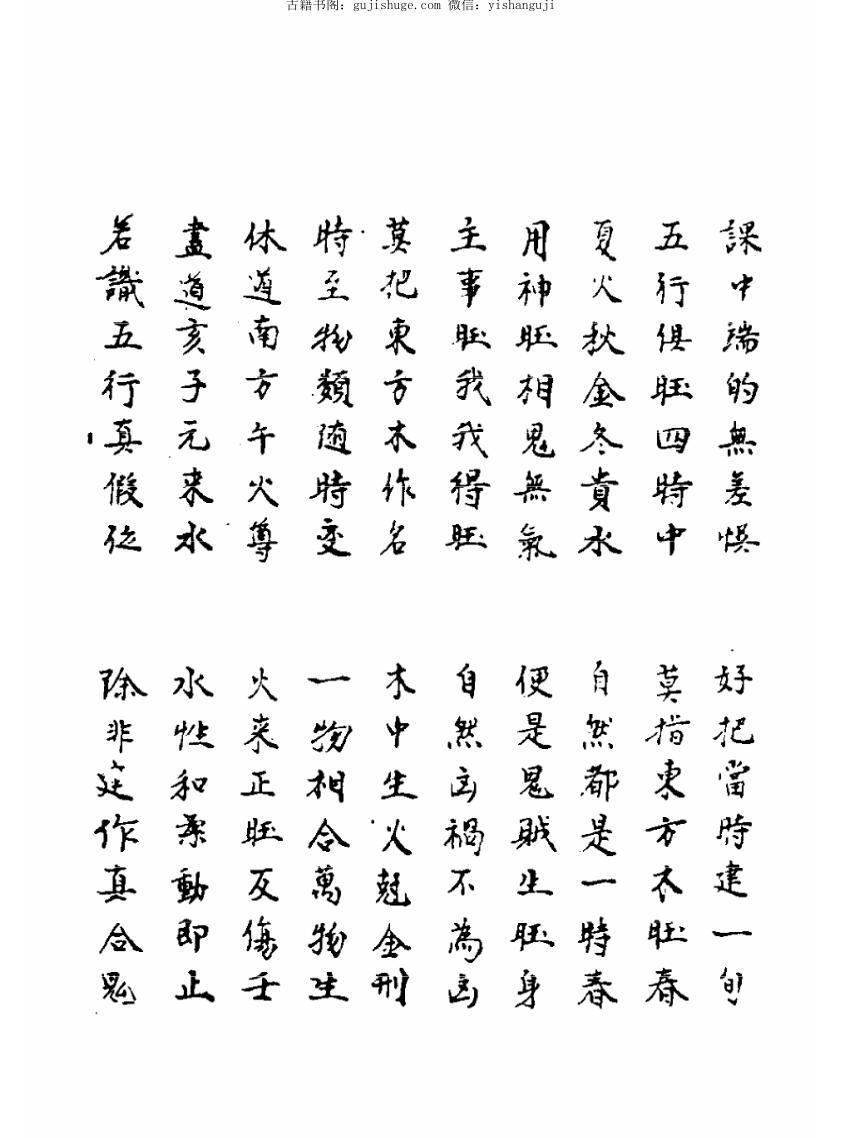 古籍书阁: gujishuge.com 微信: yishanguji
課中端的無差悞
好把當時建一旬
五行俱旺四時中
莫指東方木旺春
夏火秋金冬貴水
自然都是一時春
用神旺相鬼無氣
便是鬼賊生旺身
主事旺我我得旺
自然凶禍不為凶
莫把東方木作名
木中生火尅金刑
時至物類随時变
一物相合萬物生
休道南方午火尊
火来正旺反傷壬
盡道亥子元来水
水性和柔動即止
若識五行真假位
除非作真合鬼